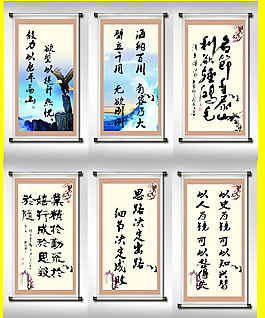 欲望以提升热忱
毅力以磨平高山。
海纳百川 有容乃大
壁立千仞 无欲则刚
名节重泰山
利欲轻鸿毛
業精於勤荒於
嬉行成於思毀
於随
思路决定出路
细节决定成败
以史为镜 可以知兴替
以人为镜 可以得失